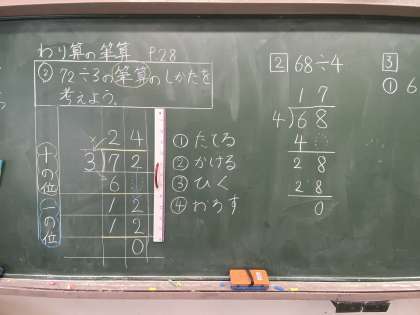 わり算の筆算 P.28
② 72÷3の筆算のしかたを
考えよう。
24
3)72
6
12
12
0
十の位
一の位
① たてる
② かける
③ ひく
④ おろす
2 68÷4
17
4)68
4
28
28
0
3
① 6